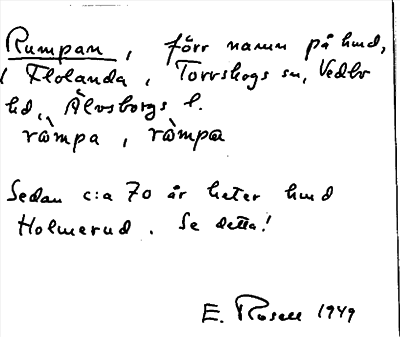 Rumpan, förr namn på hmd,
i Flolanda, Torrskogs sn, Vedbo
hd, Älvsborgs l.
ràmpa, ràmpa
Sedan c:a 70 år heter hmd
Holmerud. Se detta!
E. Rosell 1949